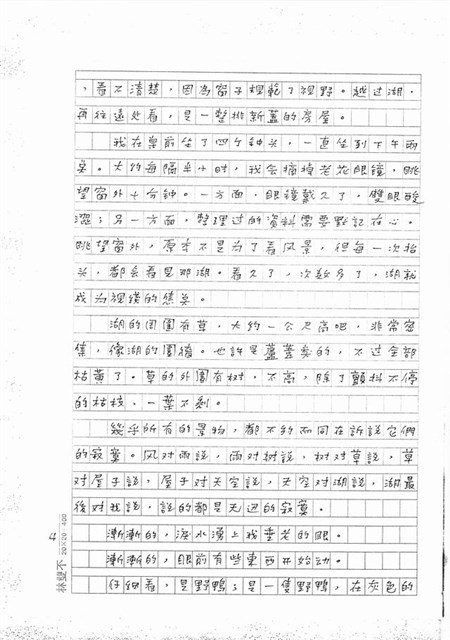 ，看不清楚，因為窗子了視野。越过湖，
再往遠处看，是一整排新蓋的房屋。
我在桌前坐了四个钟头，一直坐到上午兩
点。大約每隔半小时，我会摘掉老花眼鏡，眺
望窗外十分钟。一方面，眼鏡戴久了，雙眼酸
澀；另一方面，整理过的資料需要記在心。
眺望窗外，原本不是为了看风景，但每一次抬
头，都会看見那湖。看久了，次數多了，湖就
成为視線的焦点。
湖的周圍有草，大約一公尺高吧，非常密
集，像湖的圍牆。也許是蘆葦的，不过全部
枯黃了。草的外圍有树，不高，除了顫抖不停
的枯枝，一葉不剩。
幾乎所有的景物，都不約而同在訴說它們
的寂寞。风对雨說，雨对树說，树对草說，草
对屋子說，屋子对天空說，天空对湖說，湖最
後对我說，說的都是天边的寂寞。
漸漸的，淚水湧上我垂老的眼。
漸漸的，眼前有些東西开始动。
仔細看，是野鴨；是一隻野鴨，在灰色的
林雙不
20×20=400